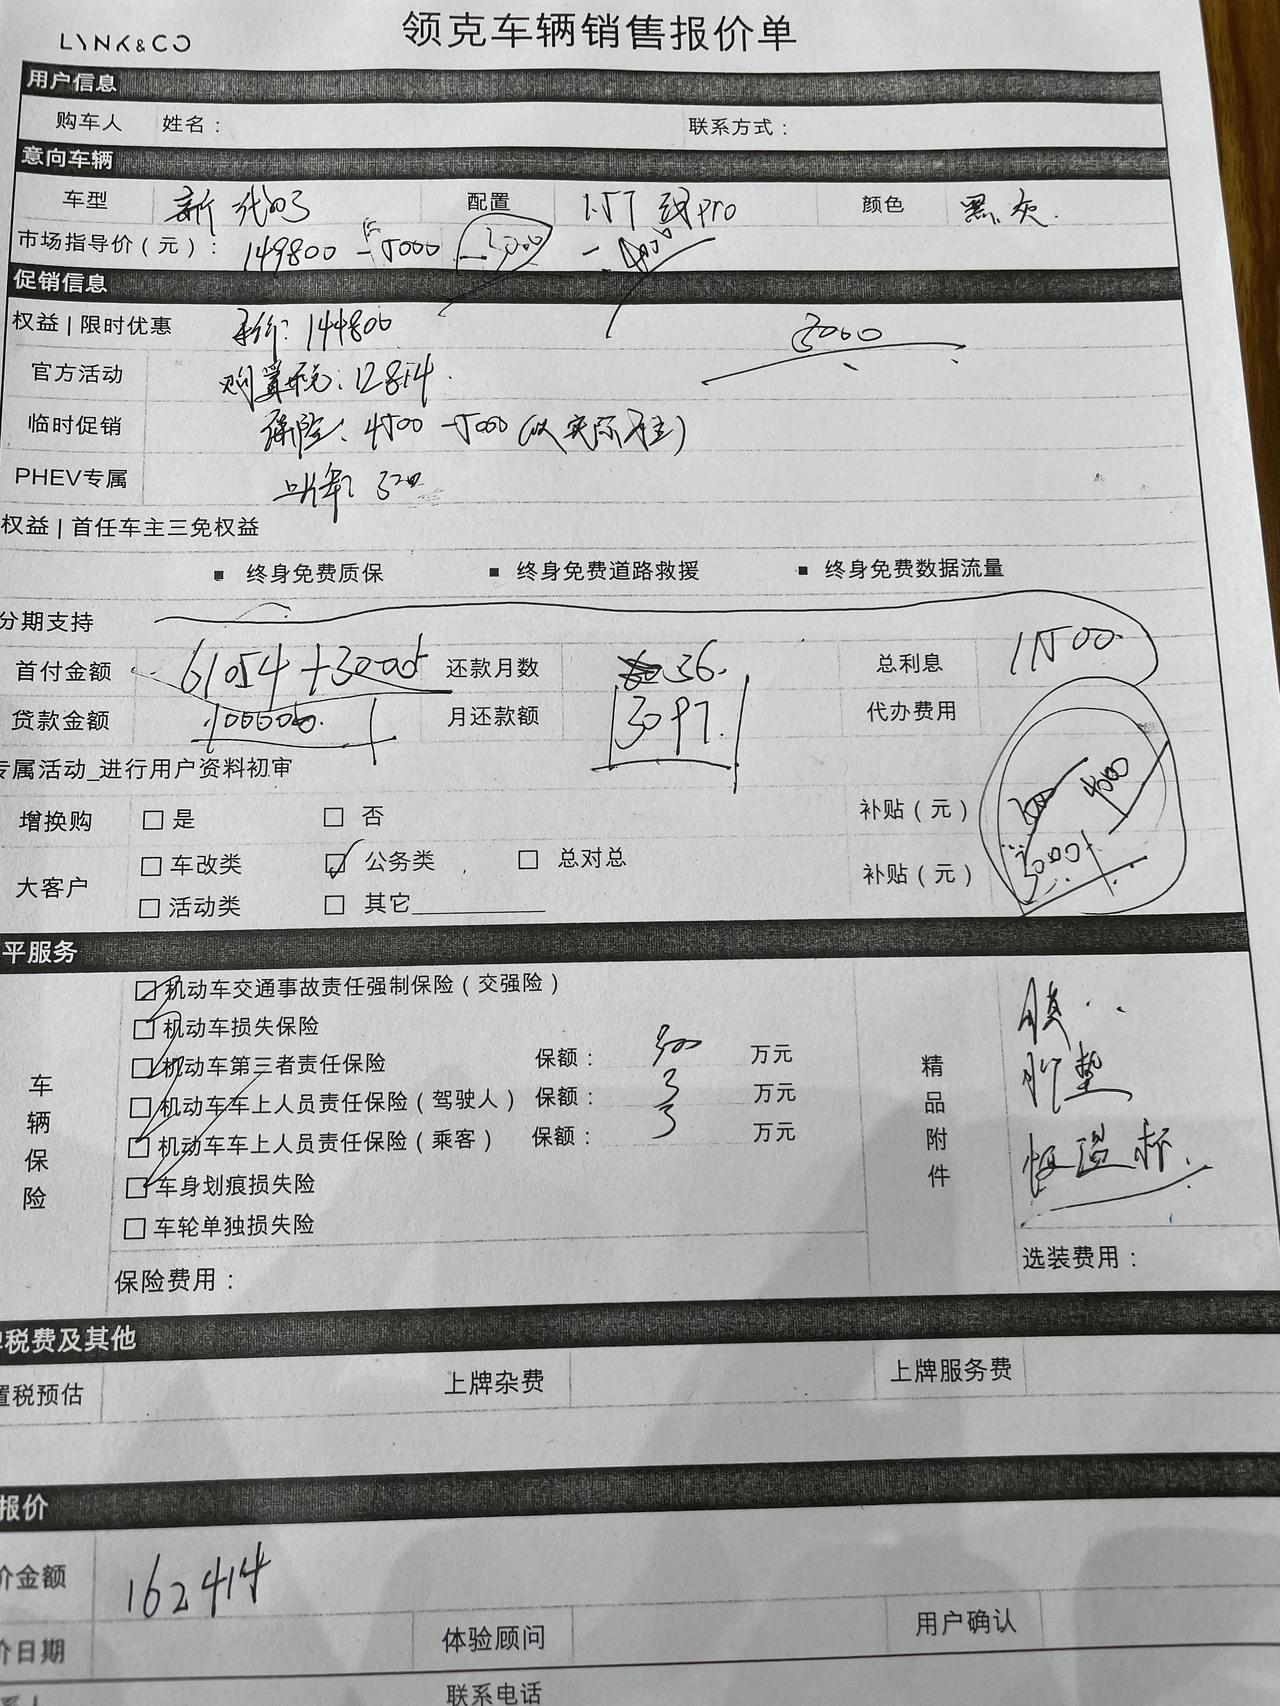 LYNK&CO
领克车辆销售报价单
用户信息
购车人 姓名： 联系方式：
意向车辆
车型 新 配置 1.5T Pro 颜色 黑灰.
市场指导价（元）： 149800 -5000 -3000 -4000
促销信息
权益 | 限时优惠 车价: 144800 3000
官方活动 购置税: 12814.
临时促销 保险: 4500-5000 (以实际为主)
PHEV专属 上牌: 300
权益 | 首任车主三免权益
▪ 终身免费质保 ▪ 终身免费道路救援 ▪ 终身免费数据流量
分期支持
首付金额 61054+3000 还款月数 36. 总利息 11500.
贷款金额 100000. 月还款额 3097. 代办费用
专属活动_进行用户资料初审
增换购 □ 是 □ 否 补贴（元） 4000
大客户 □ 车改类 ☑ 公务类 □ 总对总 补贴（元） 3000
□ 活动类 □ 其它
平服务
车辆保险
☑ 机动车交通事故责任强制保险（交强险）
☑ 机动车损失保险
☑ 机动车第三者责任保险 保额： 300 万元
☑ 机动车车上人员责任保险（驾驶人） 保额： 3 万元
☑ 机动车车上人员责任保险（乘客） 保额： 3 万元
☑ 车身划痕损失险
□ 车轮单独损失险
保险费用：
精品附件
膜
脚垫
恒温杯.
选装费用：
牌税费及其他
置税预估 上牌杂费 上牌服务费
报价
价金额 162414
价日期 体验顾问 用户确认
系人 联系电话